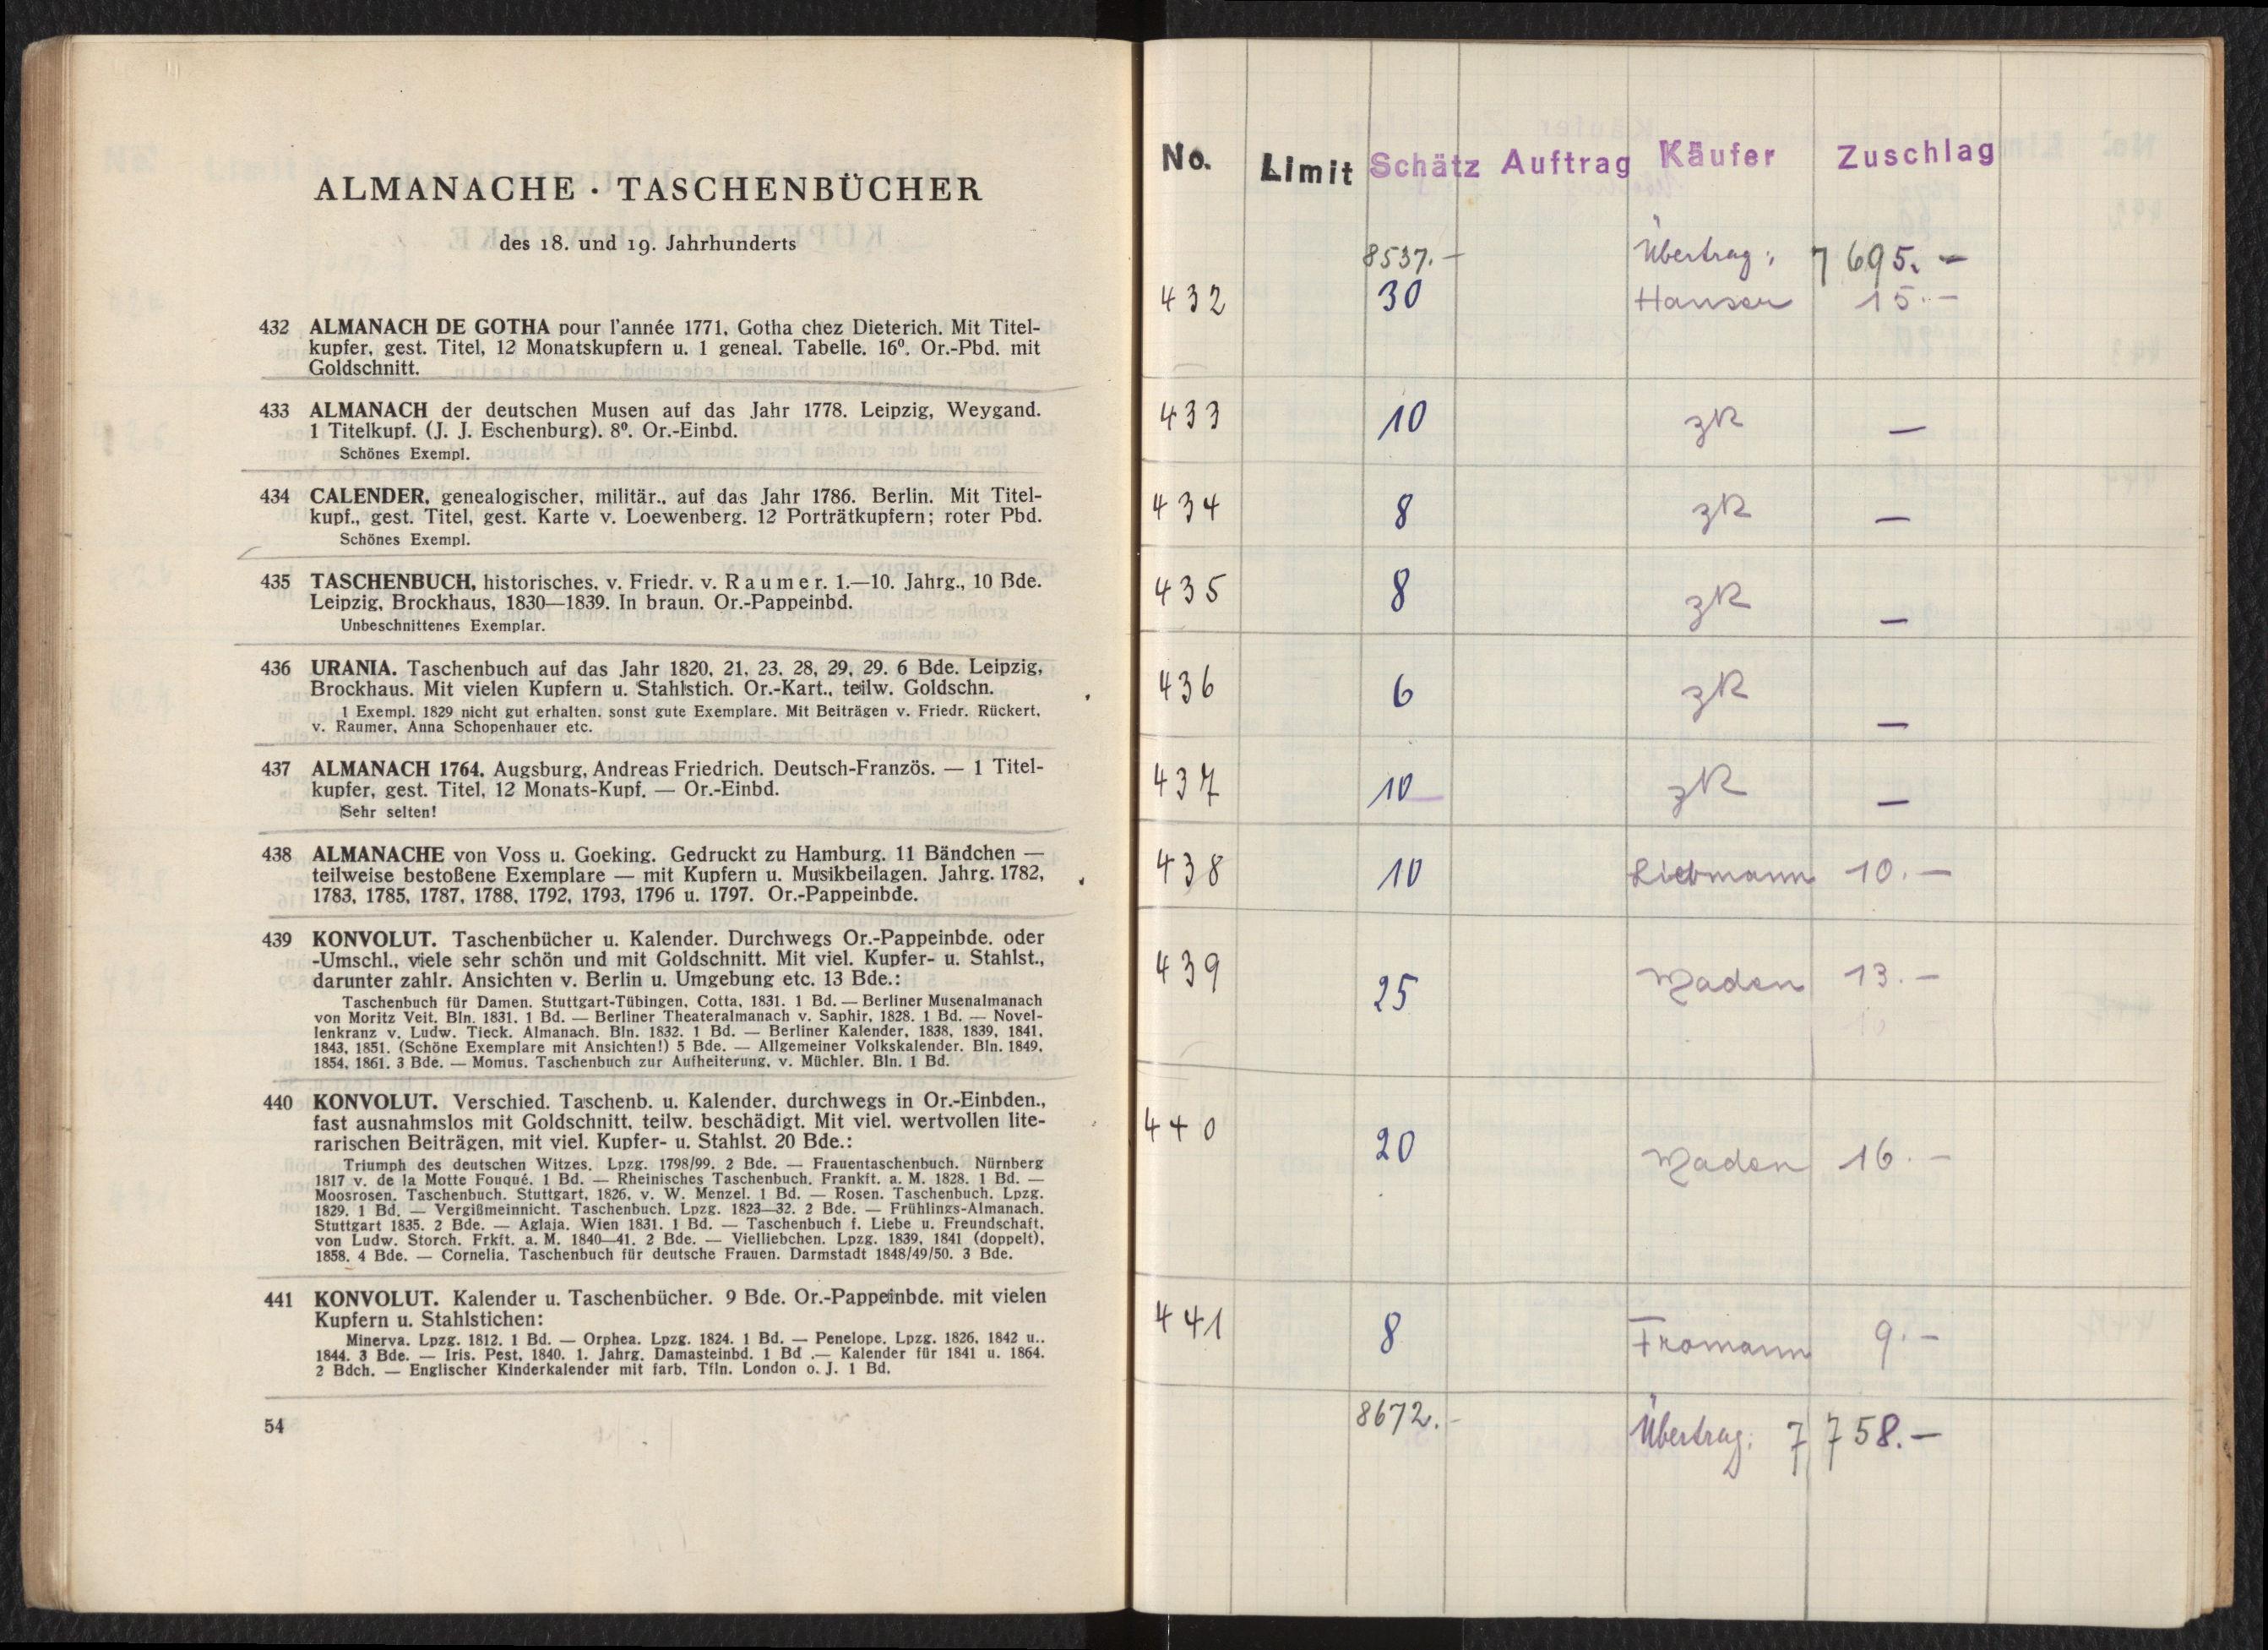 ALMANACHE · TASCHENBÜCHER
des 18. und 19. Jahrhunderts
432 ALMANACH DE GOTHA pour l'année 1771, Gotha chez Dieterich. Mit Titel-
kupfer, gest. Titel, 12 Monatskupfern u. 1 geneal. Tabelle. 16⁰. Or.-Pbd. mit
Goldschnitt.
433 ALMANACH der deutschen Musen auf das Jahr 1778. Leipzig, Weygand.
1 Titelkupf. (J. J. Eschenburg). 8⁰. Or.-Einbd.
Schönes Exempl.
434 CALENDER, genealogischer, militär., auf das Jahr 1786. Berlin. Mit Titel-
kupf., gest. Titel, gest. Karte v. Loewenberg. 12 Porträtkupfern; roter Pbd.
Schönes Exempl.
435 TASCHENBUCH, historisches, v. Friedr. v. Raumer. 1.—10. Jahrg., 10 Bde.
Leipzig, Brockhaus, 1830—1839. In braun. Or.-Pappeinbd.
Unbeschnittenes Exemplar.
436 URANIA. Taschenbuch auf das Jahr 1820, 21, 23, 28, 29, 29. 6 Bde. Leipzig,
Brockhaus. Mit vielen Kupfern u. Stahlstich. Or.-Kart., teilw. Goldschn.
1 Exempl. 1829 nicht gut erhalten, sonst gute Exemplare. Mit Beiträgen v. Friedr. Rückert,
v. Raumer, Anna Schopenhauer etc.
437 ALMANACH 1764. Augsburg, Andreas Friedrich. Deutsch-Französ. — 1 Titel-
kupfer, gest. Titel, 12 Monats-Kupf. — Or.-Einbd.
Sehr selten!
438 ALMANACHE von Voss u. Goeking. Gedruckt zu Hamburg. 11 Bändchen —
teilweise bestoßene Exemplare — mit Kupfern u. Musikbeilagen. Jahrg. 1782,
1783, 1785, 1787, 1788, 1792, 1793, 1796 u. 1797. Or.-Pappeinbde.
439 KONVOLUT. Taschenbücher u. Kalender. Durchwegs Or.-Pappeinbde. oder
-Umschl., viele sehr schön und mit Goldschnitt. Mit viel. Kupfer- u. Stahlst.,
darunter zahlr. Ansichten v. Berlin u. Umgebung etc. 13 Bde.:
Taschenbuch für Damen. Stuttgart-Tübingen, Cotta, 1831. 1 Bd. — Berliner Musenalmanach
von Moritz Veit. Bln. 1831. 1 Bd. — Berliner Theateralmanach v. Saphir, 1828. 1 Bd. — Novel-
lenkranz v. Ludw. Tieck. Almanach. Bln. 1832. 1 Bd. — Berliner Kalender, 1838, 1839, 1841,
1843, 1851. (Schöne Exemplare mit Ansichten!) 5 Bde. — Allgemeiner Volkskalender. Bln. 1849,
1854, 1861. 3 Bde. — Momus. Taschenbuch zur Aufheiterung, v. Müchler. Bln. 1 Bd.
440 KONVOLUT. Verschied. Taschenb. u. Kalender, durchwegs in Or.-Einbden.,
fast ausnahmslos mit Goldschnitt, teilw. beschädigt. Mit viel. wertvollen lite-
rarischen Beiträgen, mit viel. Kupfer- u. Stahlst. 20 Bde.:
Triumph des deutschen Witzes. Lpzg. 1798/99. 2 Bde. — Frauentaschenbuch. Nürnberg
1817 v. de la Motte Fouqué. 1 Bd. — Rheinisches Taschenbuch. Frankft. a. M. 1828. 1 Bd. —
Moosrosen. Taschenbuch. Stuttgart, 1826, v. W. Menzel. 1 Bd. — Rosen. Taschenbuch. Lpzg.
1829. 1 Bd. — Vergißmeinnicht. Taschenbuch. Lpzg. 1823—32. 2 Bde. — Frühlings-Almanach.
Stuttgart 1835. 2 Bde. — Aglaja. Wien 1831. 1 Bd. — Taschenbuch f. Liebe u. Freundschaft,
von Ludw. Storch. Frkft. a. M. 1840—41. 2 Bde. — Vielliebchen. Lpzg. 1839, 1841 (doppelt),
1858. 4 Bde. — Cornelia. Taschenbuch für deutsche Frauen. Darmstadt 1848/49/50. 3 Bde.
441 KONVOLUT. Kalender u. Taschenbücher. 9 Bde. Or.-Pappeinbde. mit vielen
Kupfern u. Stahlstichen:
Minerva. Lpzg. 1812. 1 Bd. — Orphea. Lpzg. 1824. 1 Bd. — Penelope. Lpzg. 1826, 1842 u..
1844. 3 Bde. — Iris. Pest, 1840. 1. Jahrg. Damasteinbd. 1 Bd .— Kalender für 1841 u. 1864.
2 Bdch. — Englischer Kinderkalender mit farb. Tfln. London o. J. 1 Bd.
54
No. Limit Schätz Auftrag Käufer Zuschlag
8537.— Übertrag: 7695.—
432 30 Hauser 15.—
433 10 zR —
434 8 zR —
435 8 zR —
436 6 zR —
437 10 zR —
438 10 Liebmann 10.—
439 25 Maden 13.—
440 20 Maden 16.—
441 8 Fromann 9.—
8672.— Übertrag: 7758.—